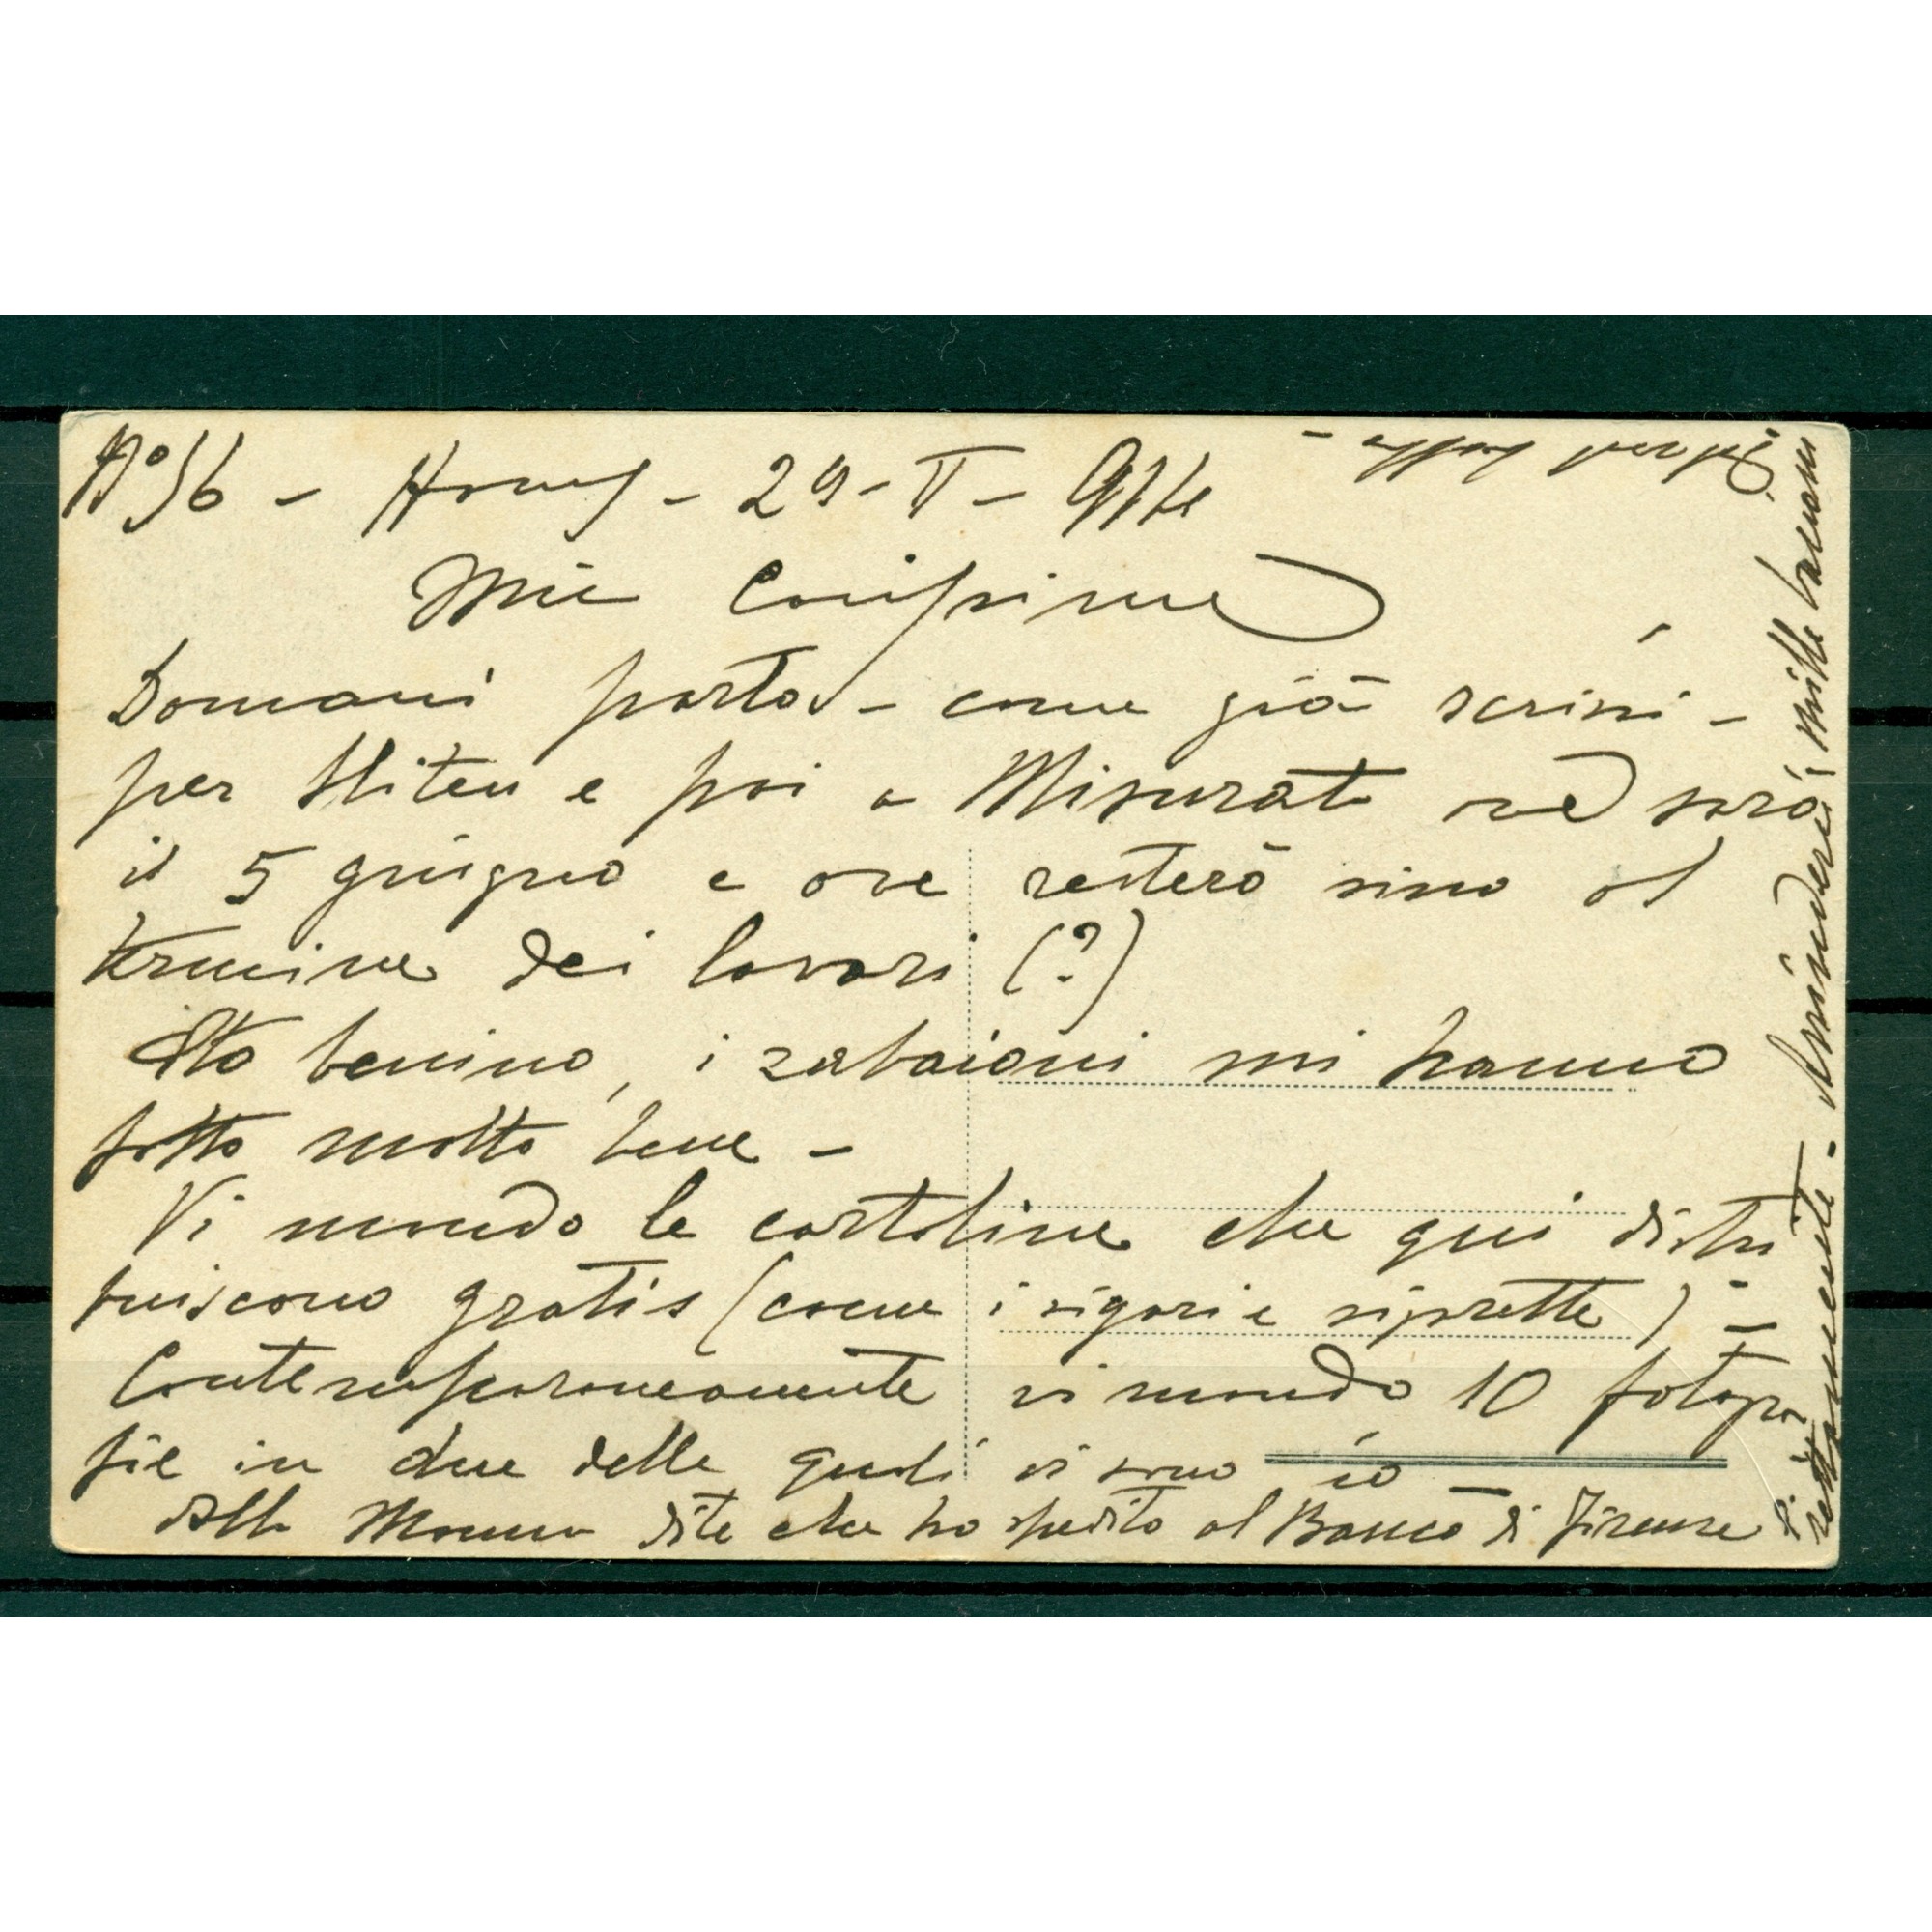 N° 36 - Homs - 29 - V - 914
Miei Carissimi
Domani parto - come già scrissi -
per Sliten e poi a Misurata ove sarò
il 5 giugno e ove resterò sino al
termine dei lavori (?)
Sto benino, i zabaioni mi hanno
fatto molto bene -
Vi mando le cartoline che qui distri
buiscono gratis (come i sigari e sigarette) -
Contemporaneamente vi mando 10 fotogra
fie in due delle quali vi sono io -
Alla Mamma dite che ho spedito al Banco di Firenze
direttamente. Arrivederci, mille bacioni